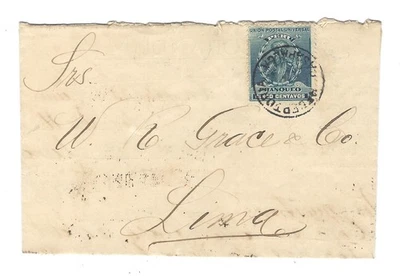 UNION POSTAL UNIVERSAL
PERU
FRANQUEO
CENTAVOS
Srs.
W. R. Grace & Co.
Lima